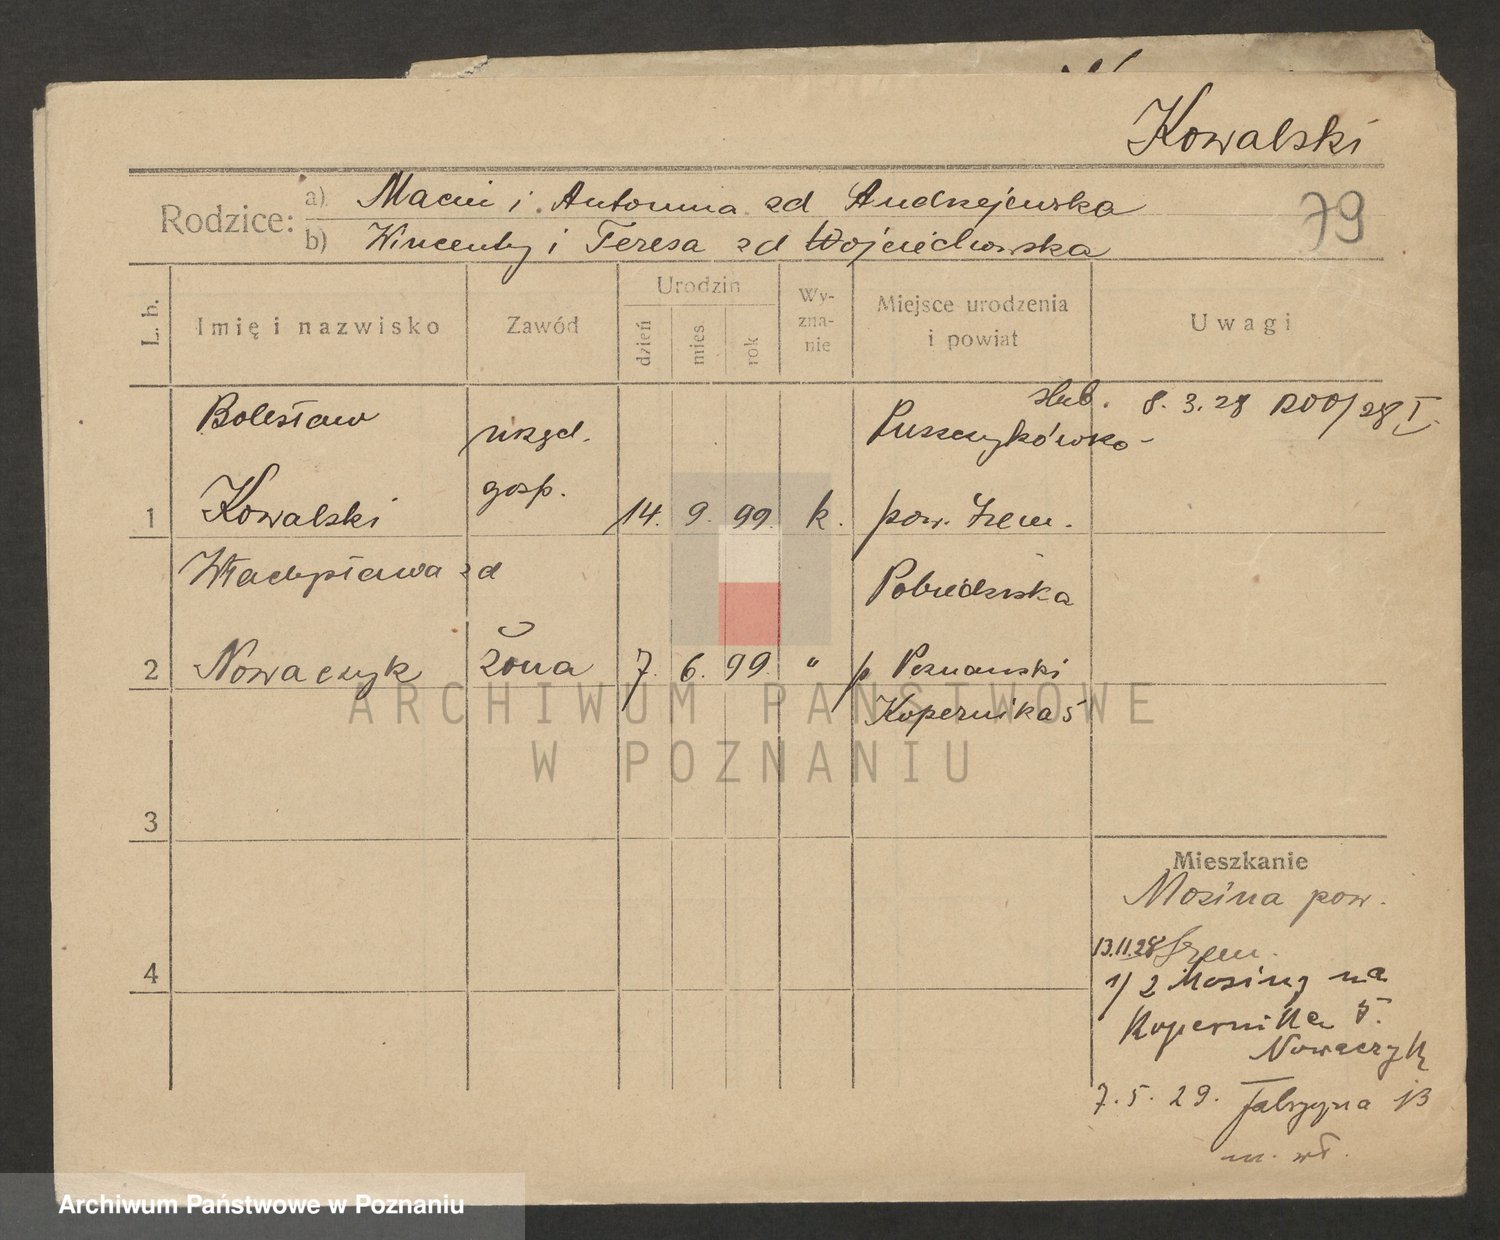 Kowalski
Rodzice:
a) Marcin i Antonina zd Andrzejewska
b) Wincenty i Teresa zd Wojciechowska
79
L. b.
Imię i nazwisko
Zawód
Urodzin
dzień
mies
rok
Wy-
zna-
nie
Miejsce urodzenia
i powiat
Uwagi
ślub. 8.3.28 1200/28 I.
Bolesław
urzęd.
Puszczykówko
gosp.
1 Kowalski 14. 9. 99. k. pow. Śrem.
Władysława zd
Pobiedziska
2 Nowaczyk żona 7. 6. 99. " p Poznański
Kopernika 5
3
4
Mieszkanie
Mosina pow.
13.11.28 Śrem.
1/2 Mosiny na
Kopernika 5.
Nowaczyk
7.5.29. Fabryczna 13
m. wł.
ARCHIWUM PAŃSTWOWE
W POZNANIU
Archiwum Państwowe w Poznaniu